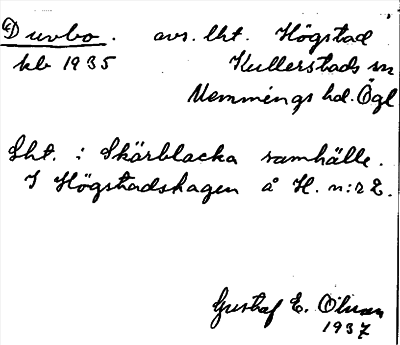 Duvbo. avs. lht. Högstad
kb 1935 Kullerstads sn
Memmings hd. Ögl
Lht. i Skärblacka samhälle.
I Högstadshagen å H. n:r 2.
Gustaf E. Ölman
1937